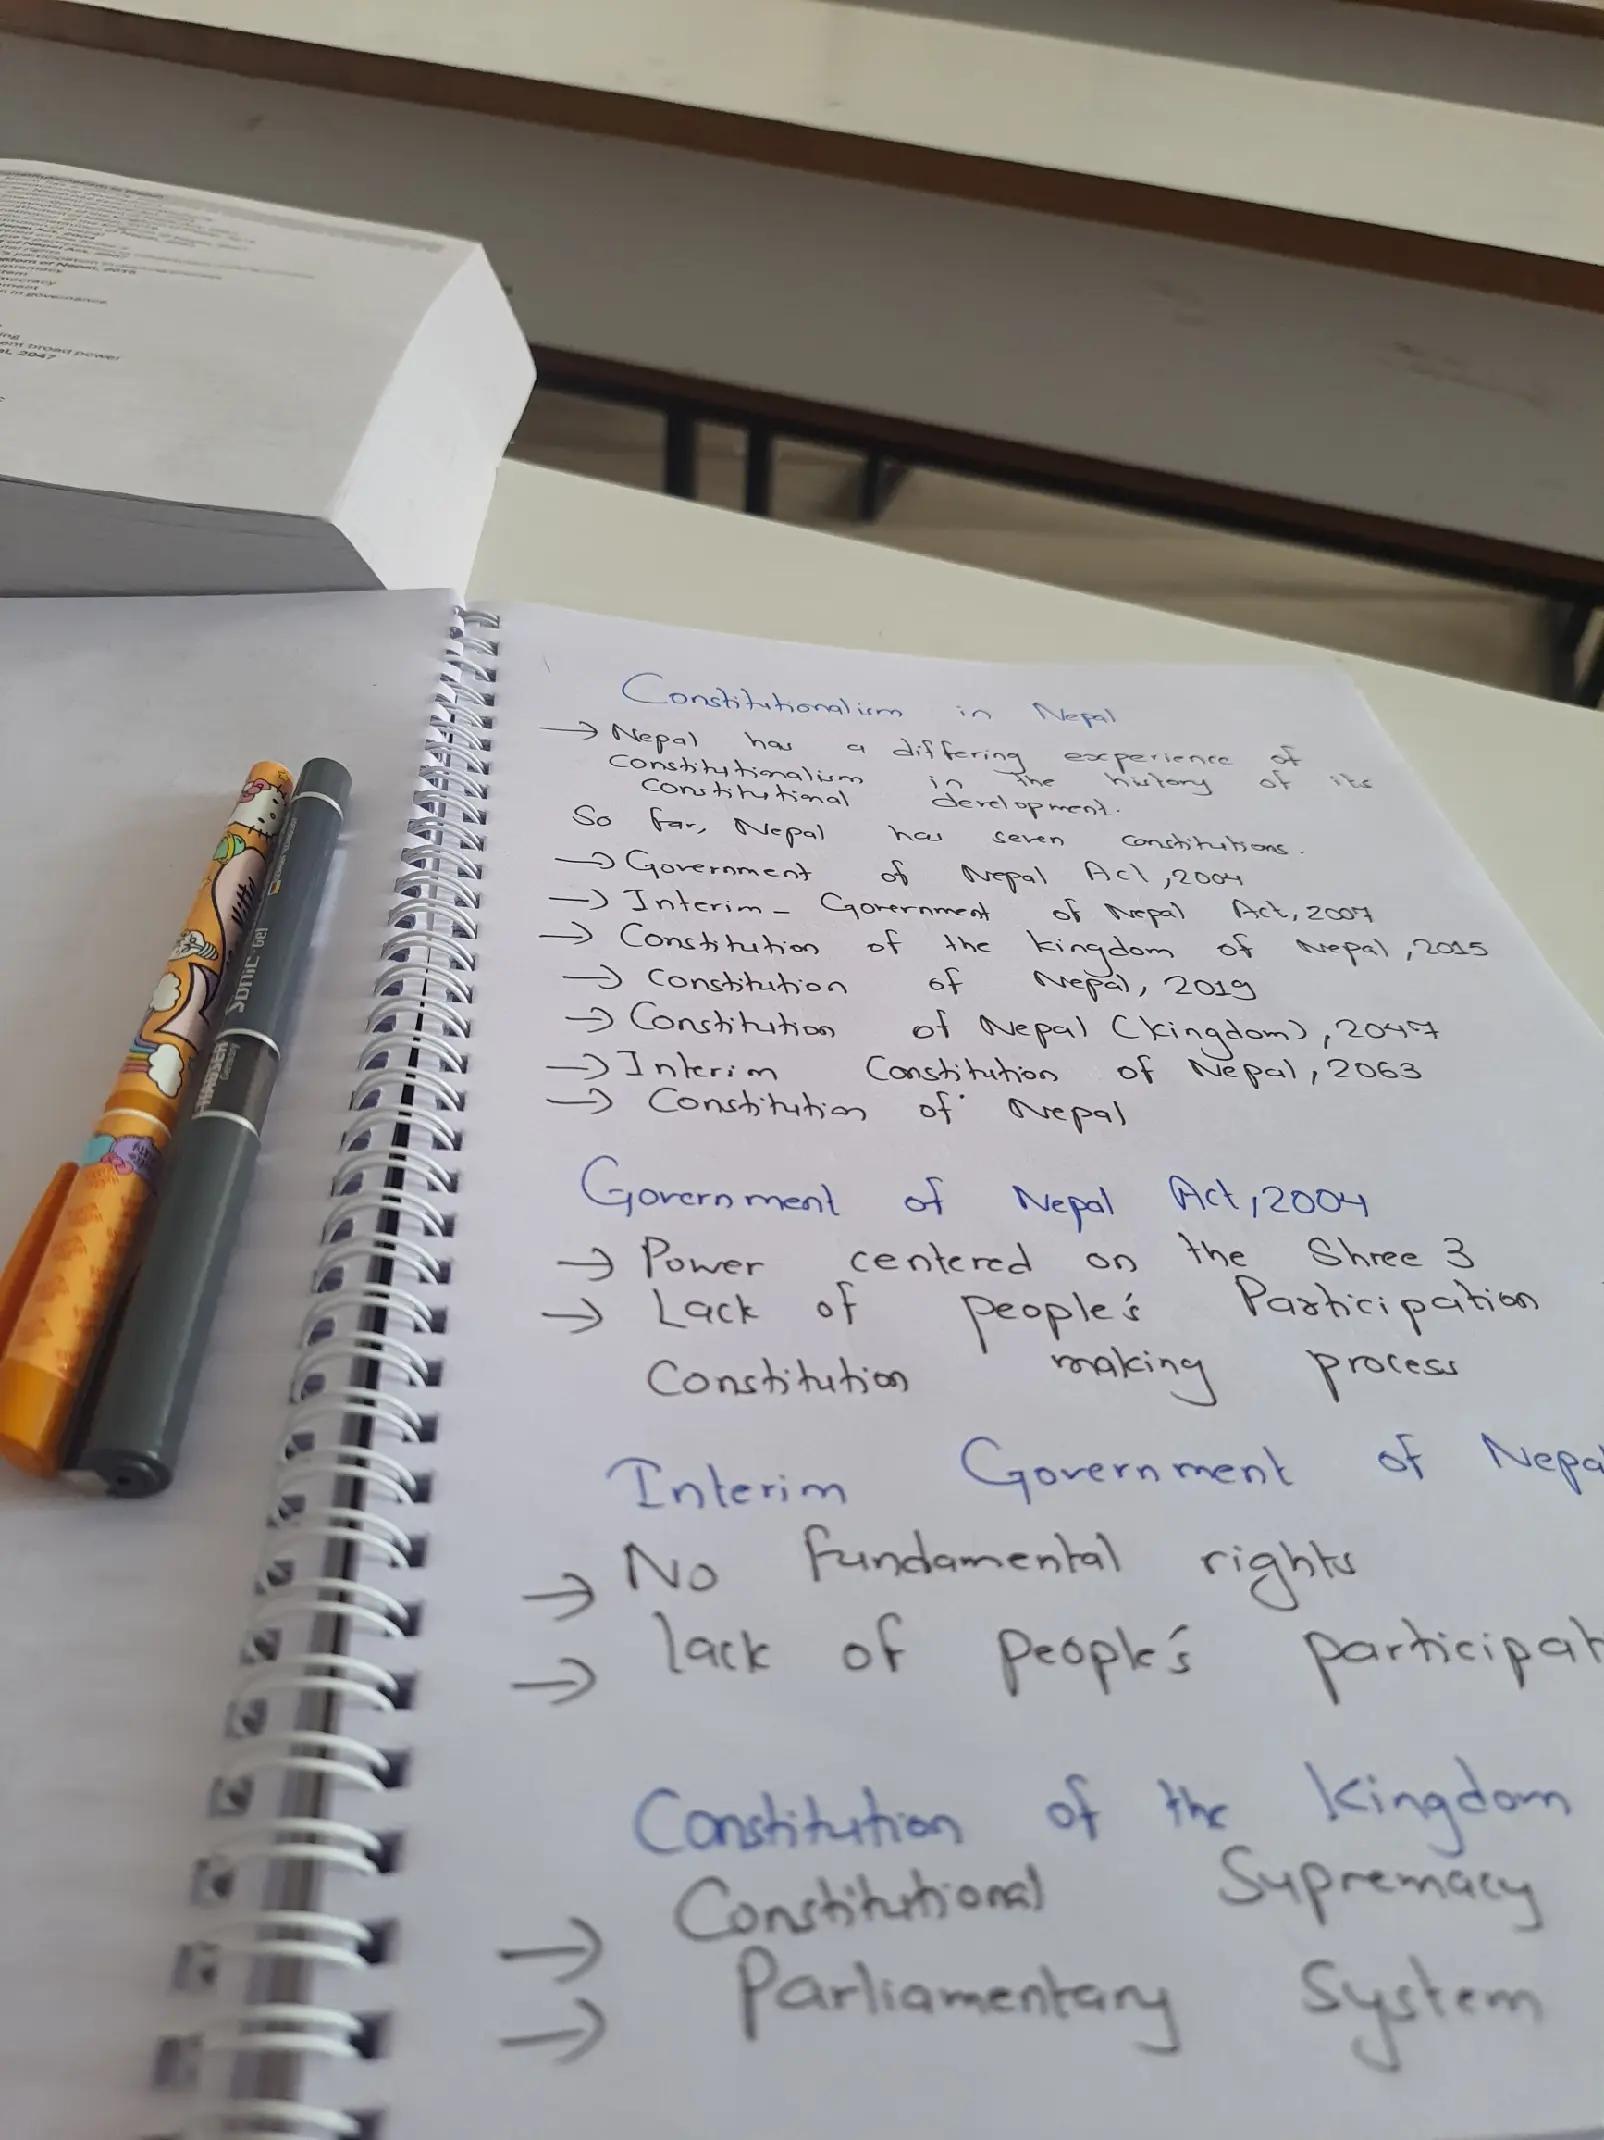 dom of Nepal, 2015
in governance
ent broad power
2047
Constitutionalism in Nepal
→ Nepal has a differing experience of
Constitutionalism in the history of its
Constitutional development.
So far, Nepal has seven constitutions.
→ Government of Nepal Act, 2004
→ Interim - Government of Nepal Act, 2007
→ Constitution of the kingdom of Nepal, 2015
→ Constitution of Nepal, 2019
→ Constitution of Nepal (kingdom), 2047
→ Interim Constitution of Nepal, 2063
→ Constitution of Nepal
Government of Nepal Act, 2004
→ Power centered on the Shree 3
→ Lack of people's Participation
Constitution making process
Interim Government of Nepa
→ No fundamental rights
→ lack of people's participat
Constitution of the Kingdom
→ Constitutional Supremacy
→ Parliamentary System
SONIC-Gel
HAUSER
Germany